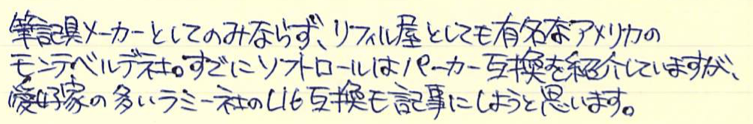 筆記具メーカーとしてのみならず、リフィル屋としても有名なアメリカの
モンテベルデ社。すでにソフトロールはパーカー互換を紹介していますが、
愛好家の多いラミー社のL16互換も記事にしようと思います。